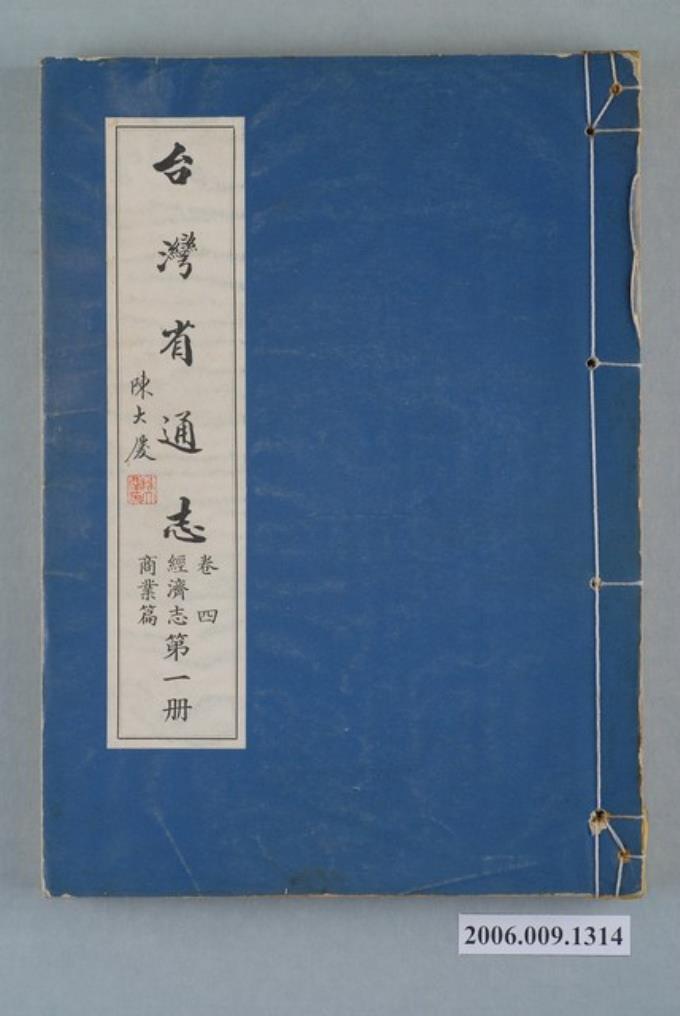 台灣省通志
卷四
經濟志第一册
商業篇
陳大慶
2006.009.1314